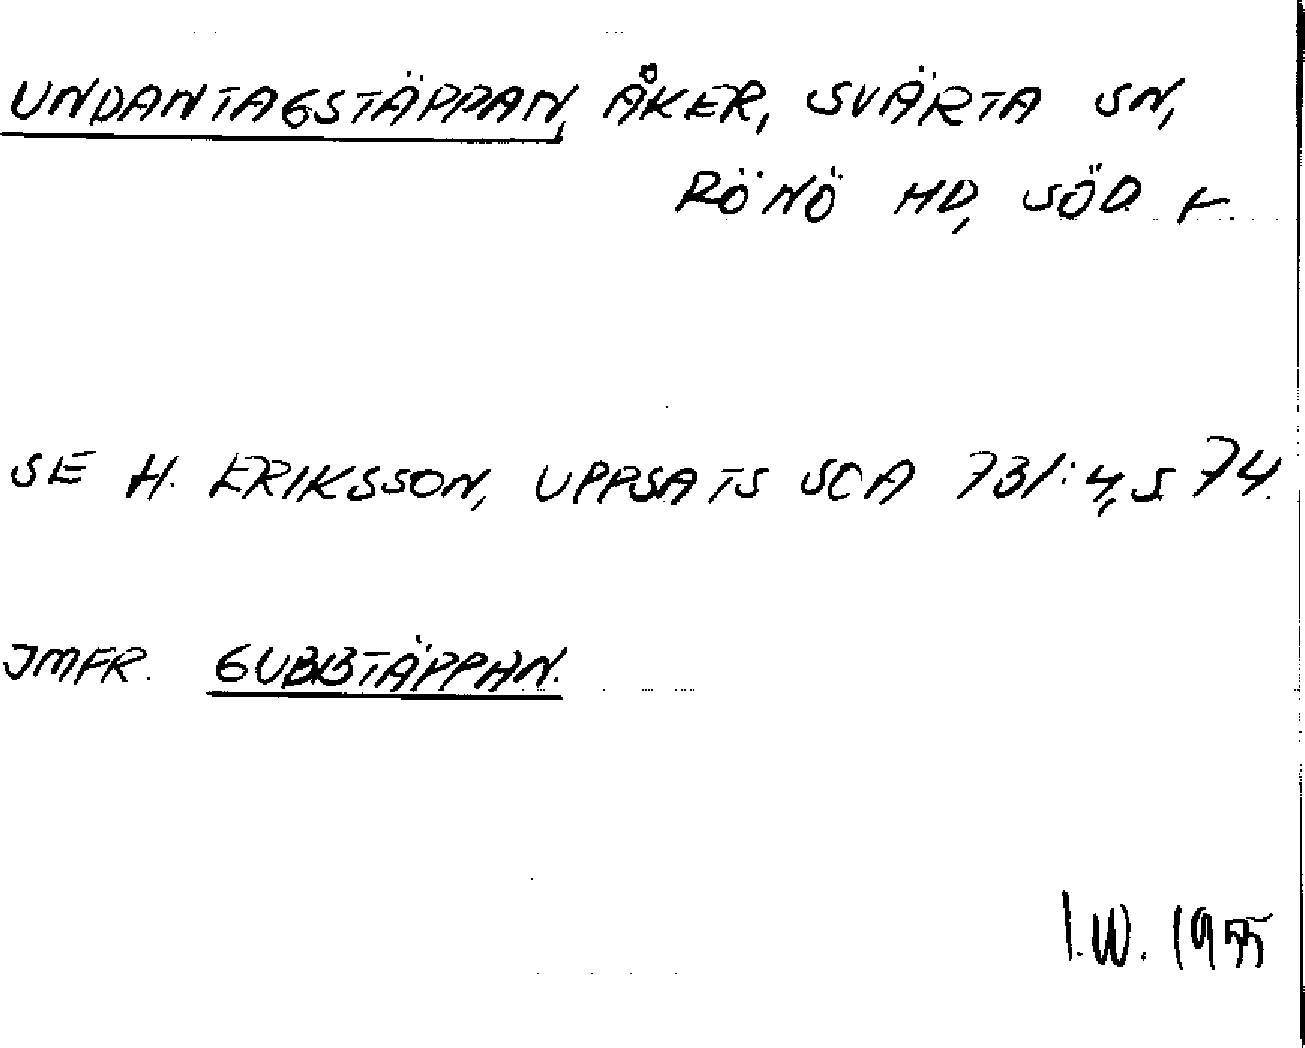 UNDANTAGSTÄPPAN, ÅKER, SVÄRTA SN,
RÖNÖ HD, SÖD L.
SE H. ERIKSSON, UPPSATS SOA 731:4, S 74.
JMFR. GUBBTÄPPAN.
I.W. 1955